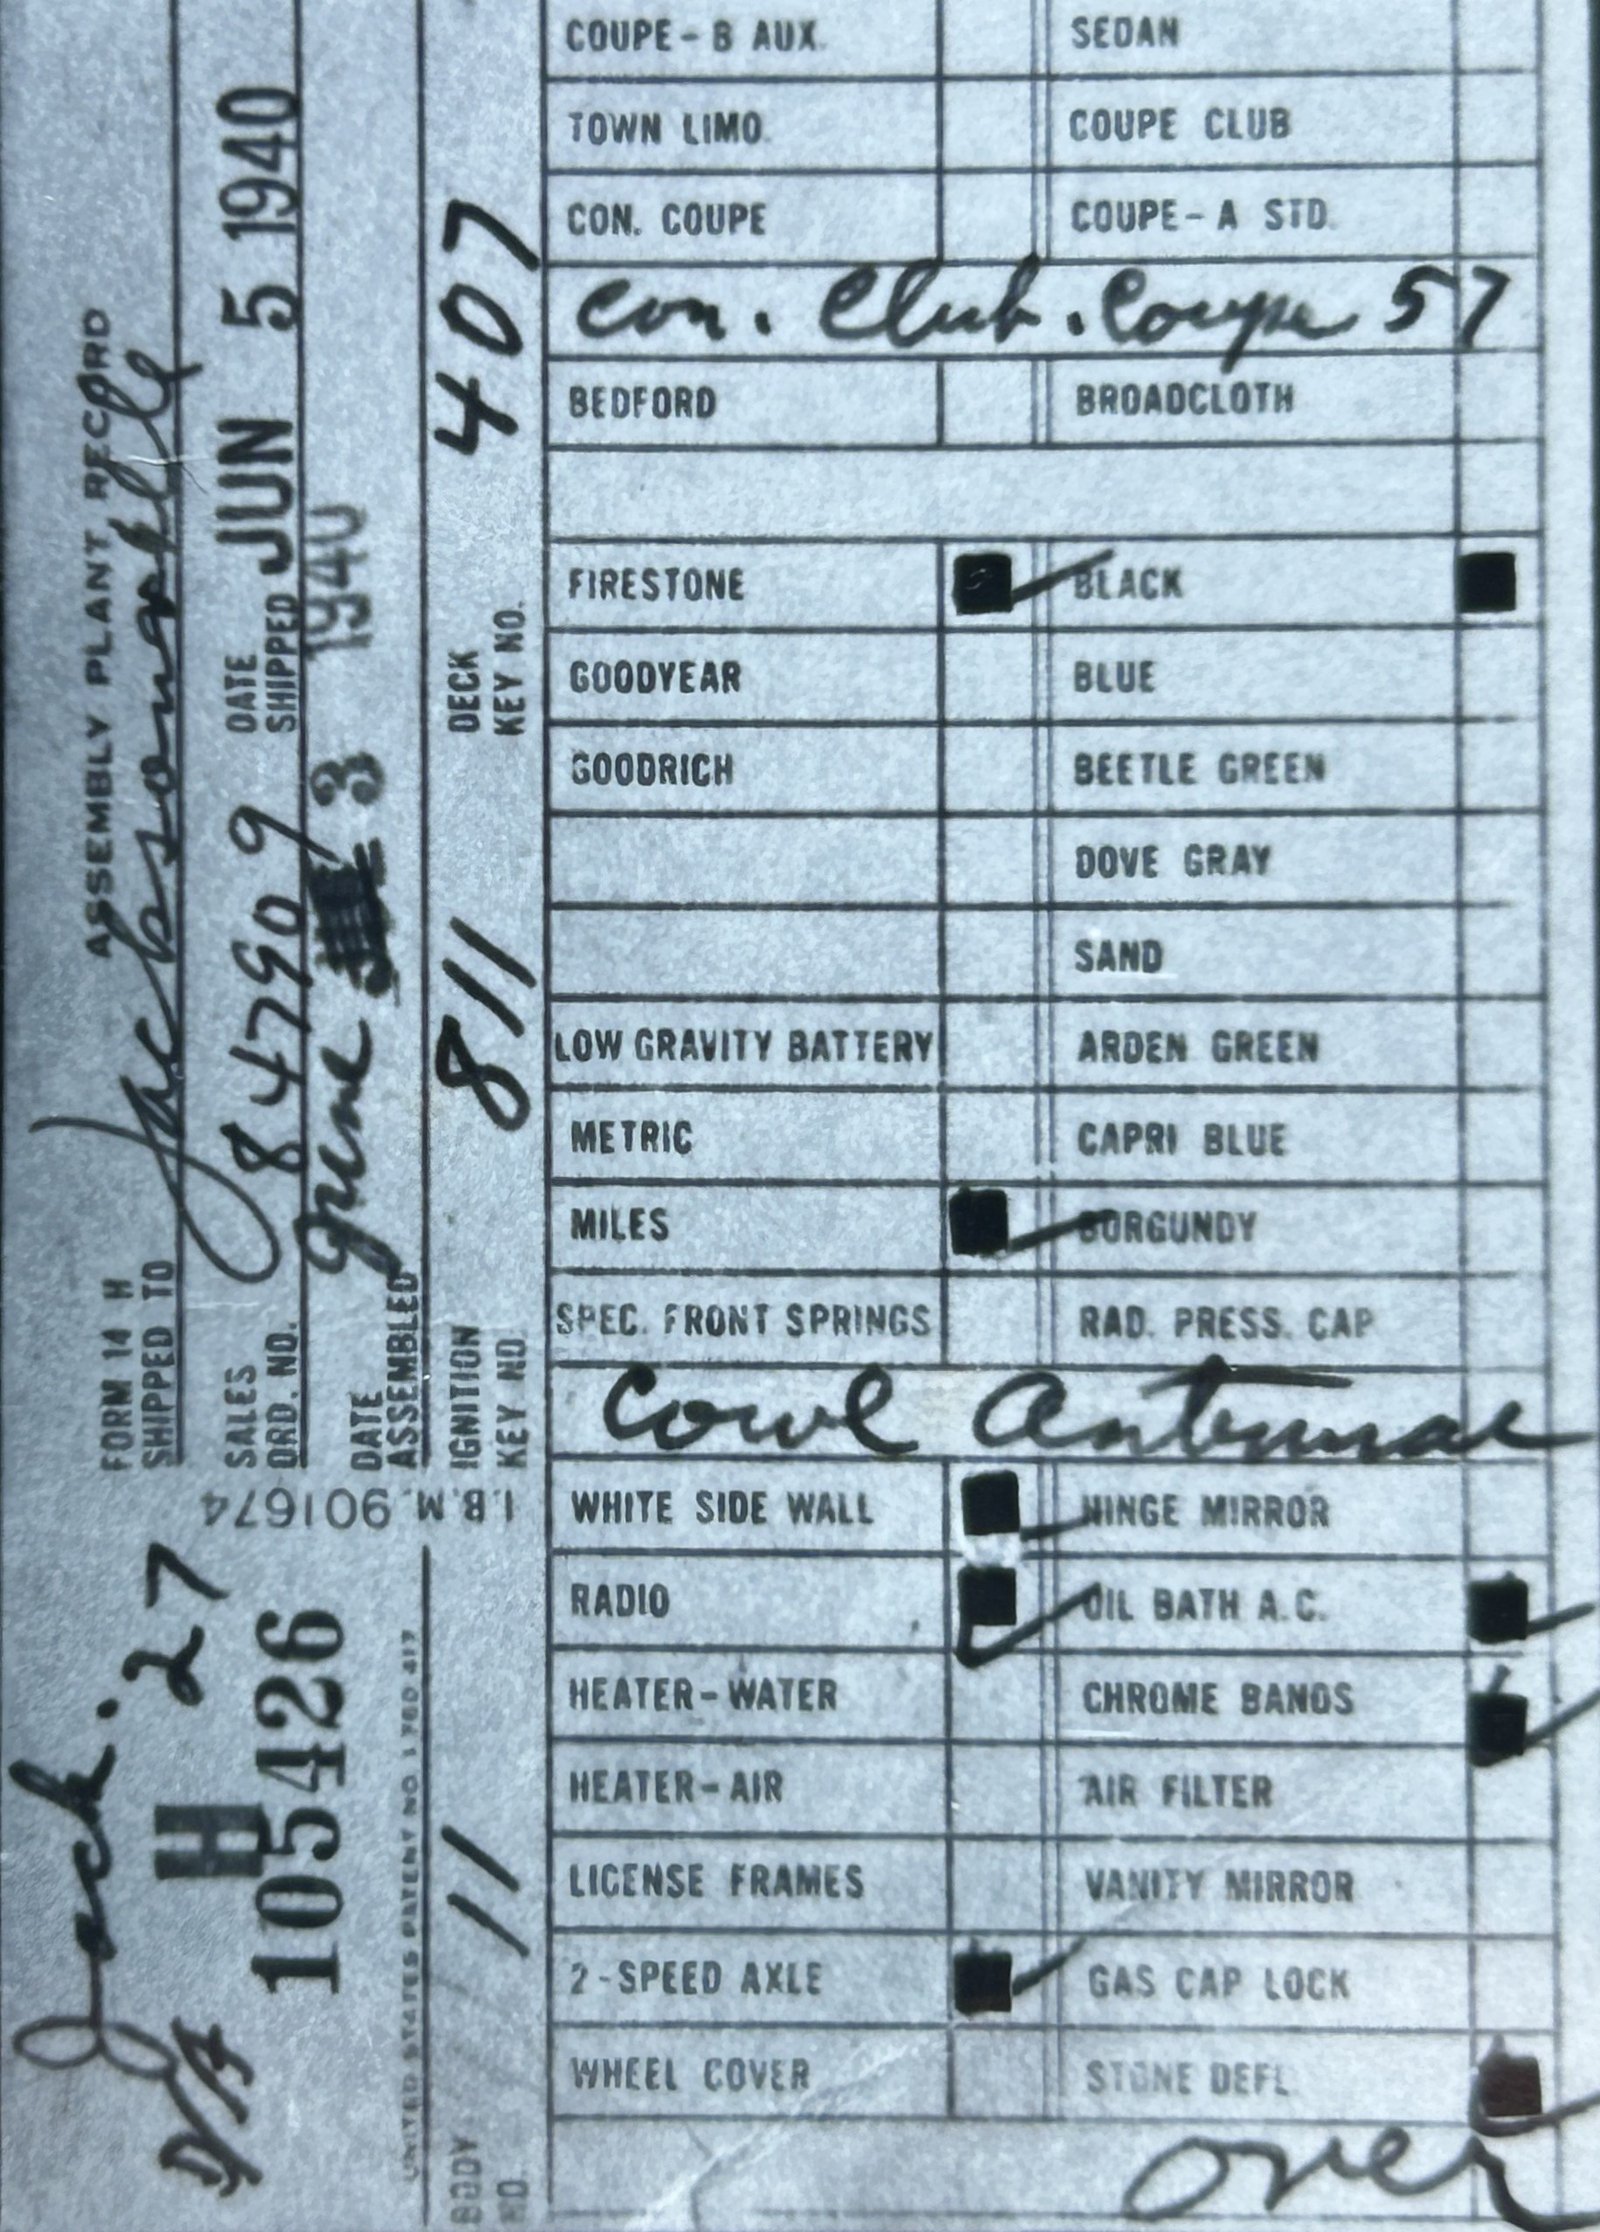 ASSEMBLY PLANT RECORD
FORM 14 H
SHIPPED TO Jacksonville
SALES ORD. NO. 84790 9 DATE SHIPPED JUN 5 1940
DATE ASSEMBLED June 3 1940
IGNITION KEY NO. 811 DECK KEY NO. 407
I.B.M. 901674
Jack. 27
D/A
H
105426
UNITED STATES PATENT NO 1 780 417
BODY NO. 11
COUPE - B AUX. SEDAN
TOWN LIMO. COUPE CLUB
CON. COUPE COUPE - A STD.
Con. Club. Coupe 57
BEDFORD BROADCLOTH
FIRESTONE BLACK
GOODYEAR BLUE
GOODRICH BEETLE GREEN
DOVE GRAY
SAND
LOW GRAVITY BATTERY ARDEN GREEN
METRIC CAPRI BLUE
MILES BURGUNDY
SPEC. FRONT SPRINGS RAD. PRESS. CAP
Cowl Antennae
WHITE SIDE WALL HINGE MIRROR
RADIO OIL BATH A.C.
HEATER - WATER CHROME BANDS
HEATER - AIR AIR FILTER
LICENSE FRAMES VANITY MIRROR
2 - SPEED AXLE GAS CAP LOCK
WHEEL COVER STONE DEFL.
over